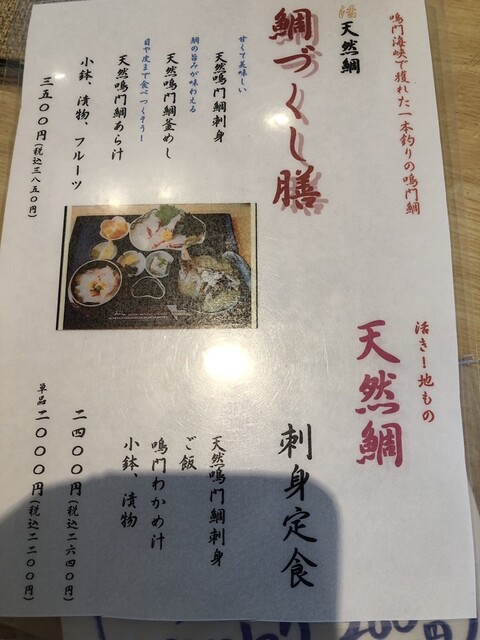 鳴門海峡で獲れた一本釣りの鳴門鯛
活 天然鯛
鯛づくし膳
甘くて美味しい
天然鳴門鯛刺身
鯛の旨みが味わえる
天然鳴門鯛釜めし
目や皮まで食べつくそう!
天然鳴門鯛あら汁
小鉢、漬物、フルーツ
三五〇〇円(税込三八五〇円)
活き!地もの
天然鯛
刺身定食
天然鳴門鯛刺身
ご飯
鳴門わかめ汁
小鉢、漬物
二四〇〇円(税込二六四〇円)
単品二〇〇〇円(税込二二〇〇円)